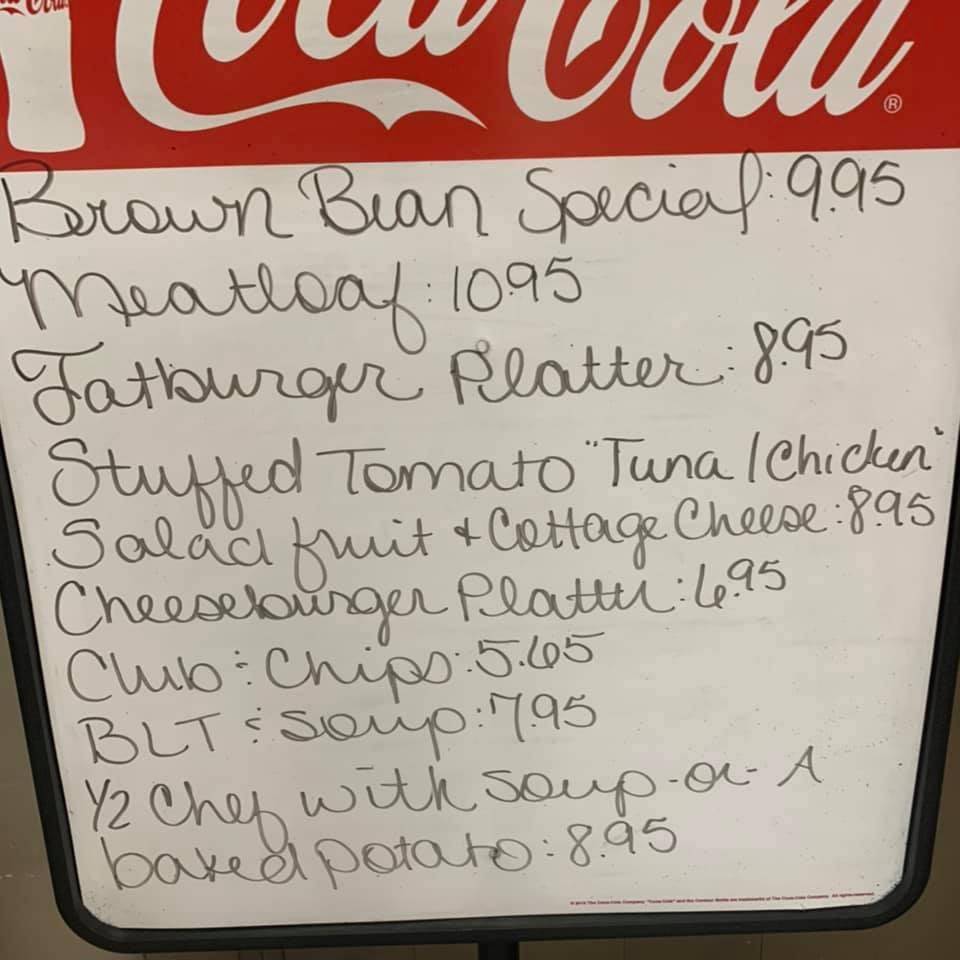 Coca-Cola
Coca-Cola ®
Brown Bean Special: 9.95
Meatloaf: 10.95
Fatburger Platter: 8.95
Stuffed Tomato "Tuna / Chicken"
Salad fruit + Cottage Cheese: 8.95
Cheeseburger Platter: 6.95
Club & Chips: 5.65
BLT & Soup: 7.95
1/2 Chef with soup -or- A
baked potato: 8.95